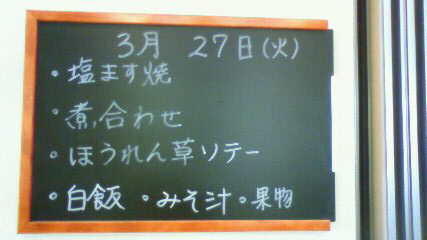 3月 27日(火)
・塩ます焼
・煮合わせ
・ほうれん草ソテー
・白飯 ・みそ汁 ・果物